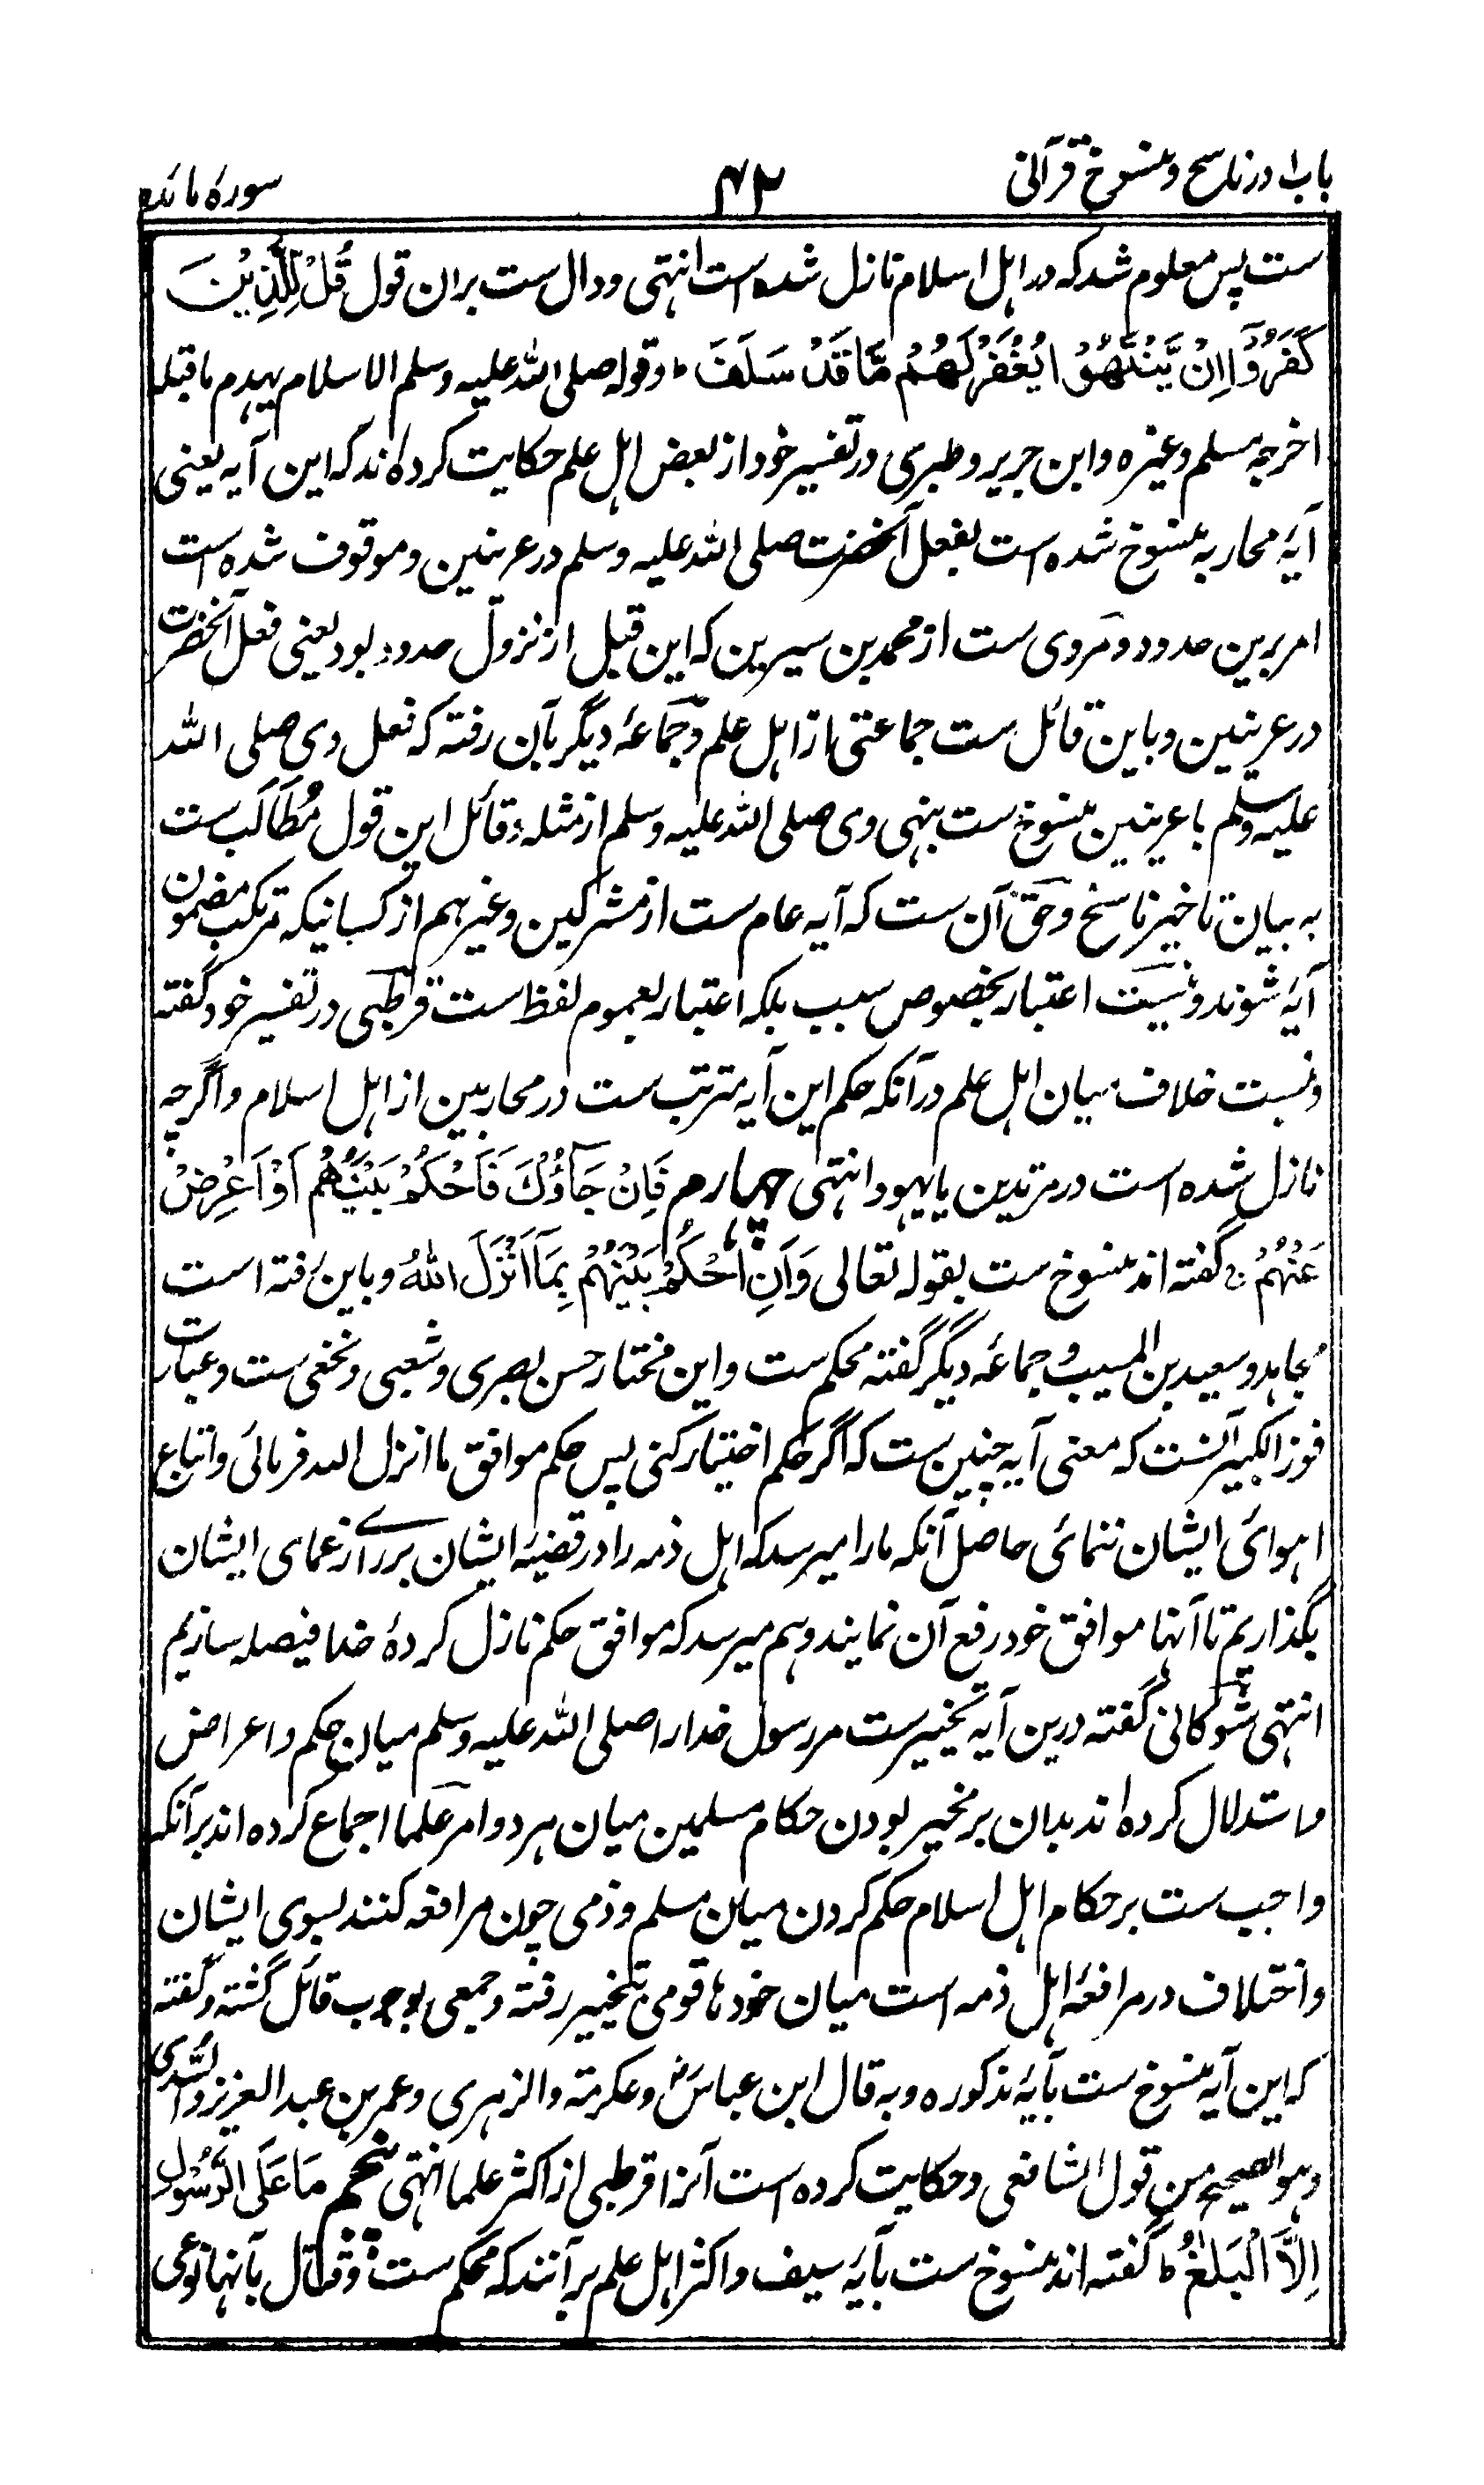 باب۱ در ناسخ و منسوخ قرآنی
۴۲
سورۂ مائدہ
ست پس معلوم شد که در اہل اسلام نازل شده است انتہی و دال ست بران قول قُلْ لِلَّذِیْنَ
کَفَرُوْٓا اِنْ یَّنْتَهُوْا یُغْفَرْ لَهُمْ مَّا قَدْ سَلَفَ ؕ وقوله صلی الله علیه وسلم الاسلام یهدم ماقبله
اخرجه مسلم وغیره وابن جریر و طبری در تفسیر خود از بعض اہل علم حکایت کرده اند که این آیه یعنی
آیۂ محاربه منسوخ شده است بفعل آنحضرت صلی الله علیه وسلم در عرینین و موقوف شده است
امر برین حدود و مروی ست از محمد بن سیرین که این قبل از نزول حدود بود یعنی فعل آنحضرت
در عرینین و باین قائل ست جماعتی از اہل علم و جماعۂ دیگر بآن رفته که فعل وی صلی الله
علیه وسلم با عرینین منسوخ ست بنہی وی صلی الله علیه وسلم از مثله و قائل این قول مُطالَب ست
به بیان تاخیر ناسخ و حق آن ست که آیه عام ست از مشرکین و غیرہم از کسانیکه مرتکب مضمون
آیۂ شوند و نیست اعتبار بخصوص سبب بلکه اعتبار بعموم لفظ ست قرطبی در تفسیر خود گفته
و نیست خلاف میان اہل علم در آنکه حکم این آیه مترتب ست در محاربین از اہل اسلام و اگرچه
نازل شده است در مرتدین یا یہود انتہی چهارم فَاِنْ جَآءُوْكَ فَاحْكُمْ بَیْنَهُمْ اَوْ اَعْرِضْ
عَنْهُمْ ج گفته اند منسوخ ست بقوله تعالی وَاَنِ احْكُمْ بَیْنَهُمْ بِمَآ اَنْزَلَ اللهُ و باین رفته است
مجاہد و سعید بن المسیب و جماعۂ دیگر گفته محکم ست و این مختار حسن بصری و شعبی و نخعی ست و عبارت
فوز الکبیر آنست که معنی آیه چنین ست که اگر حکم اختیار کنی پس حکم موافق ما انزل الله فرمائی و اتباع
اہوائی ایشان ننمائی حاصل آنکه ما را میرسد که اہل ذمه را در قضیۂ ایشان برراے زعمای ایشان
بگذاریم تا آنہا موافق خود رفع آن نمایند و ہم میرسد که موافق حکم نازل کردۂ خدا فیصله سازیم
انتہی شوکانی گفته درین آیه تخییرست مر رسول خدا را صلی الله علیه وسلم میان حکم و اعراض
و استدلال کرده اند بدان بر مخیر بودن حکام مسلمین میان ہر دو امر علما اجماع کرده اند بر آنکه
واجب ست بر حکام اہل اسلام حکم کردن میان مسلم و ذمی چون مرافعه کنند بسوی ایشان
و اختلاف در مرافعۂ اہل ذمه است میان خودہا قومی بتخییر رفته و جمعی بوجوب قائل گشته و گفته
که این آیه منسوخ ست بآیۂ مذکوره و به قال ابن عباسؓ وعکرمة والزہری وعمر بن عبدالعزیز والسّدی
وہو الصحیح من قول الشافعی و حکایت کرده است آنرا قرطبی از اکثر علما انتہی پنجم مَا عَلَی الرَّسُوْلِ
اِلَّا الْبَلٰغُ ؕ گفته اند منسوخ ست بآیۂ سیف و اکثر اہل علم برآنند که محکم ست و قتال بآنہا نوعی